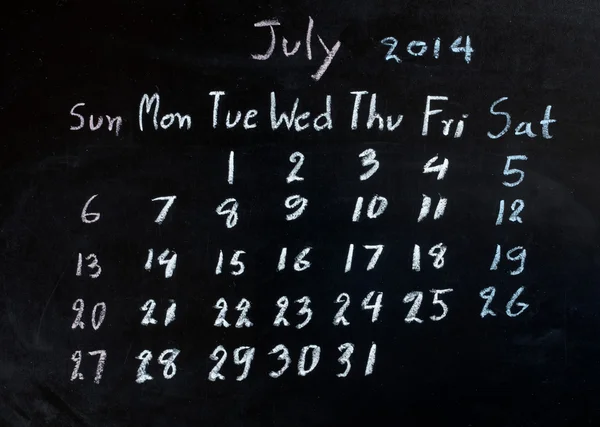 July 2014
Sun Mon Tue Wed Thu Fri Sat
1 2 3 4 5
6 7 8 9 10 11 12
13 14 15 16 17 18 19
20 21 22 23 24 25 26
27 28 29 30 31